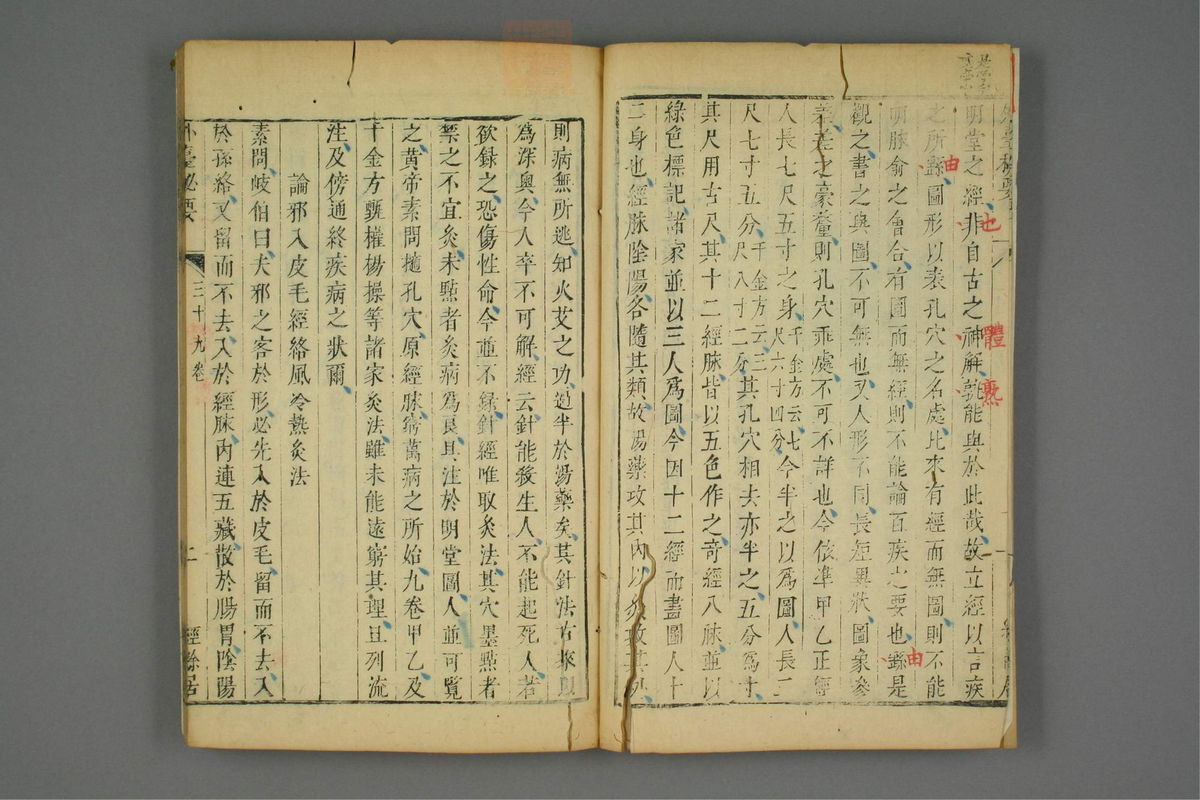 明堂之經非自古之神解孰能與於此哉故立經以言疾
之所繇圖形以表孔穴之名處比來有經而無圖則不能
明脉俞之會合有圖而無經則不能論百疾之要也繇是
觀之書之與圖不可無也又人形不同長短異狀圖象參
差差之豪釐則孔穴乖處不可不詳也今依準甲乙正經
人長七尺五寸之身千金方云七尺六寸四分今半之以爲圖人長三
尺七寸五分千金方云三尺八寸二分其孔穴相去亦半之五分爲寸
其尺用古尺其十二經脉皆以五色作之奇經八脉並以
綠色標記諸家並以三人爲圖今因十二經而畫圖人十
二身也經脉陰陽各隨其類故湯藥攻其內以灸攻其外
則病無所逃知火艾之功過半於湯藥矣其針法古來以
爲深奧今人卒不可解經云針能殺生人不能起死人若
欲錄之恐傷性命今並不錄針經唯取灸法其穴墨點者
禁之不宜灸朱點者灸病爲良具注於明堂圖人並可覽
之黃帝素問擿孔穴原經脉窮萬病之所始九卷甲乙及
千金方甄權楊操等諸家灸法雖未能遠窮其理且列流
注及傍通終疾病之狀爾
論邪入皮毛經絡風冷熱灸法
素問岐伯曰夫邪之客於形必先入於皮毛留而不去入
於孫絡又留而不去入於經脉內連五藏散於腸胃陰陽
外臺祕要
三十九卷
二
經餘居
由
也
體
熱
由